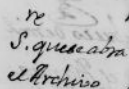 re
S. que se abra
el Archivo